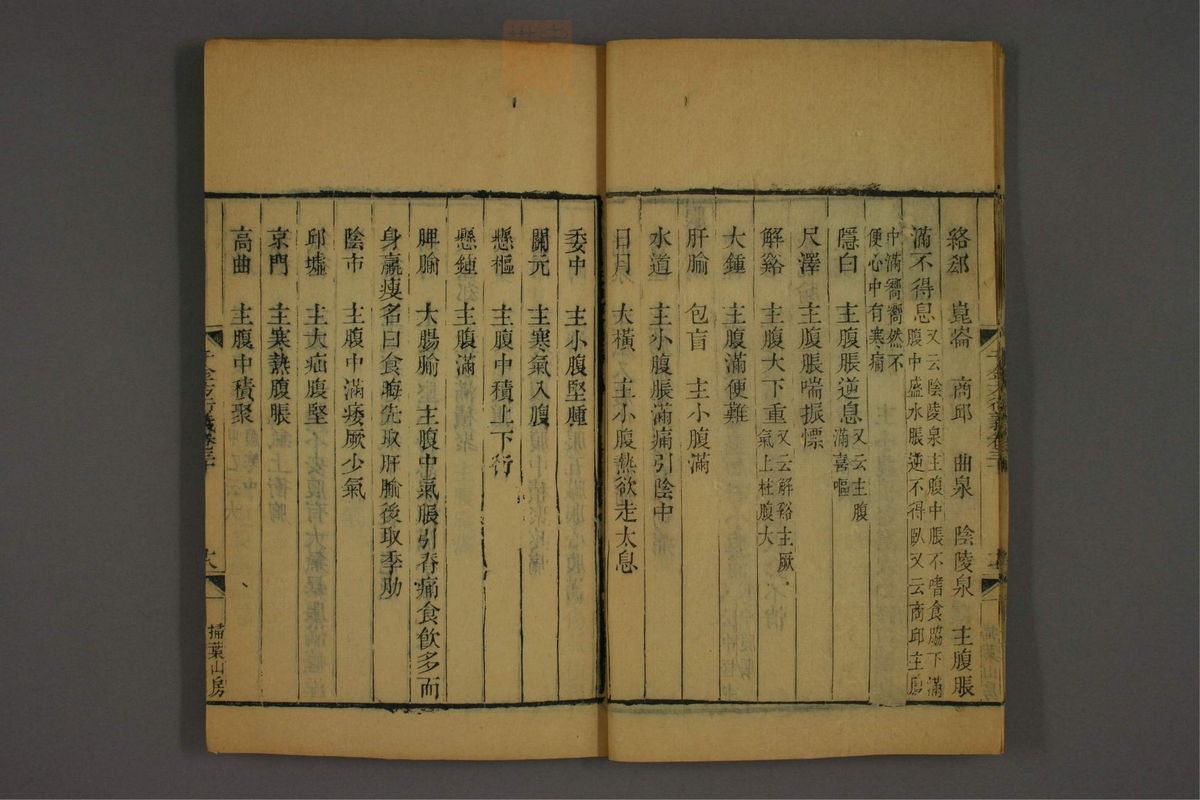 絡郄　崑崙　商邱　曲泉　陰陵泉　主腹脹
滿不得息又云陰陵泉主腹中脹不嗜食脇下滿
腹中盛水脹逆不得臥又云商邱主
中滿嚮嚮然不
便心中有寒痛
隱白　主腹脹逆息又云主腹
滿喜嘔
尺澤　主腹脹喘振慄
解谿　主腹大下重又云解谿主厥
氣上柱腹大
大鍾　主腹滿便難
肝腧　包肓　主小腹滿
水道　主小腹脹滿痛引陰中
日月　大橫　主小腹熱欲走太息
委中　主小腹堅腫
關元　主寒氣入腹
懸樞　主腹中積上下行
懸鍾　主腹滿
脾腧　大腸腧　主腹中氣脹引脊痛食飲多而
身羸瘦名曰食晦先取肝腧後取季肋
陰市　主腹中滿痿厥少氣
邱墟　主大疝腹堅
京門　主寒熱腹脹
高曲　主腹中積聚
千金方衍義卷三十
大
掃葉山房